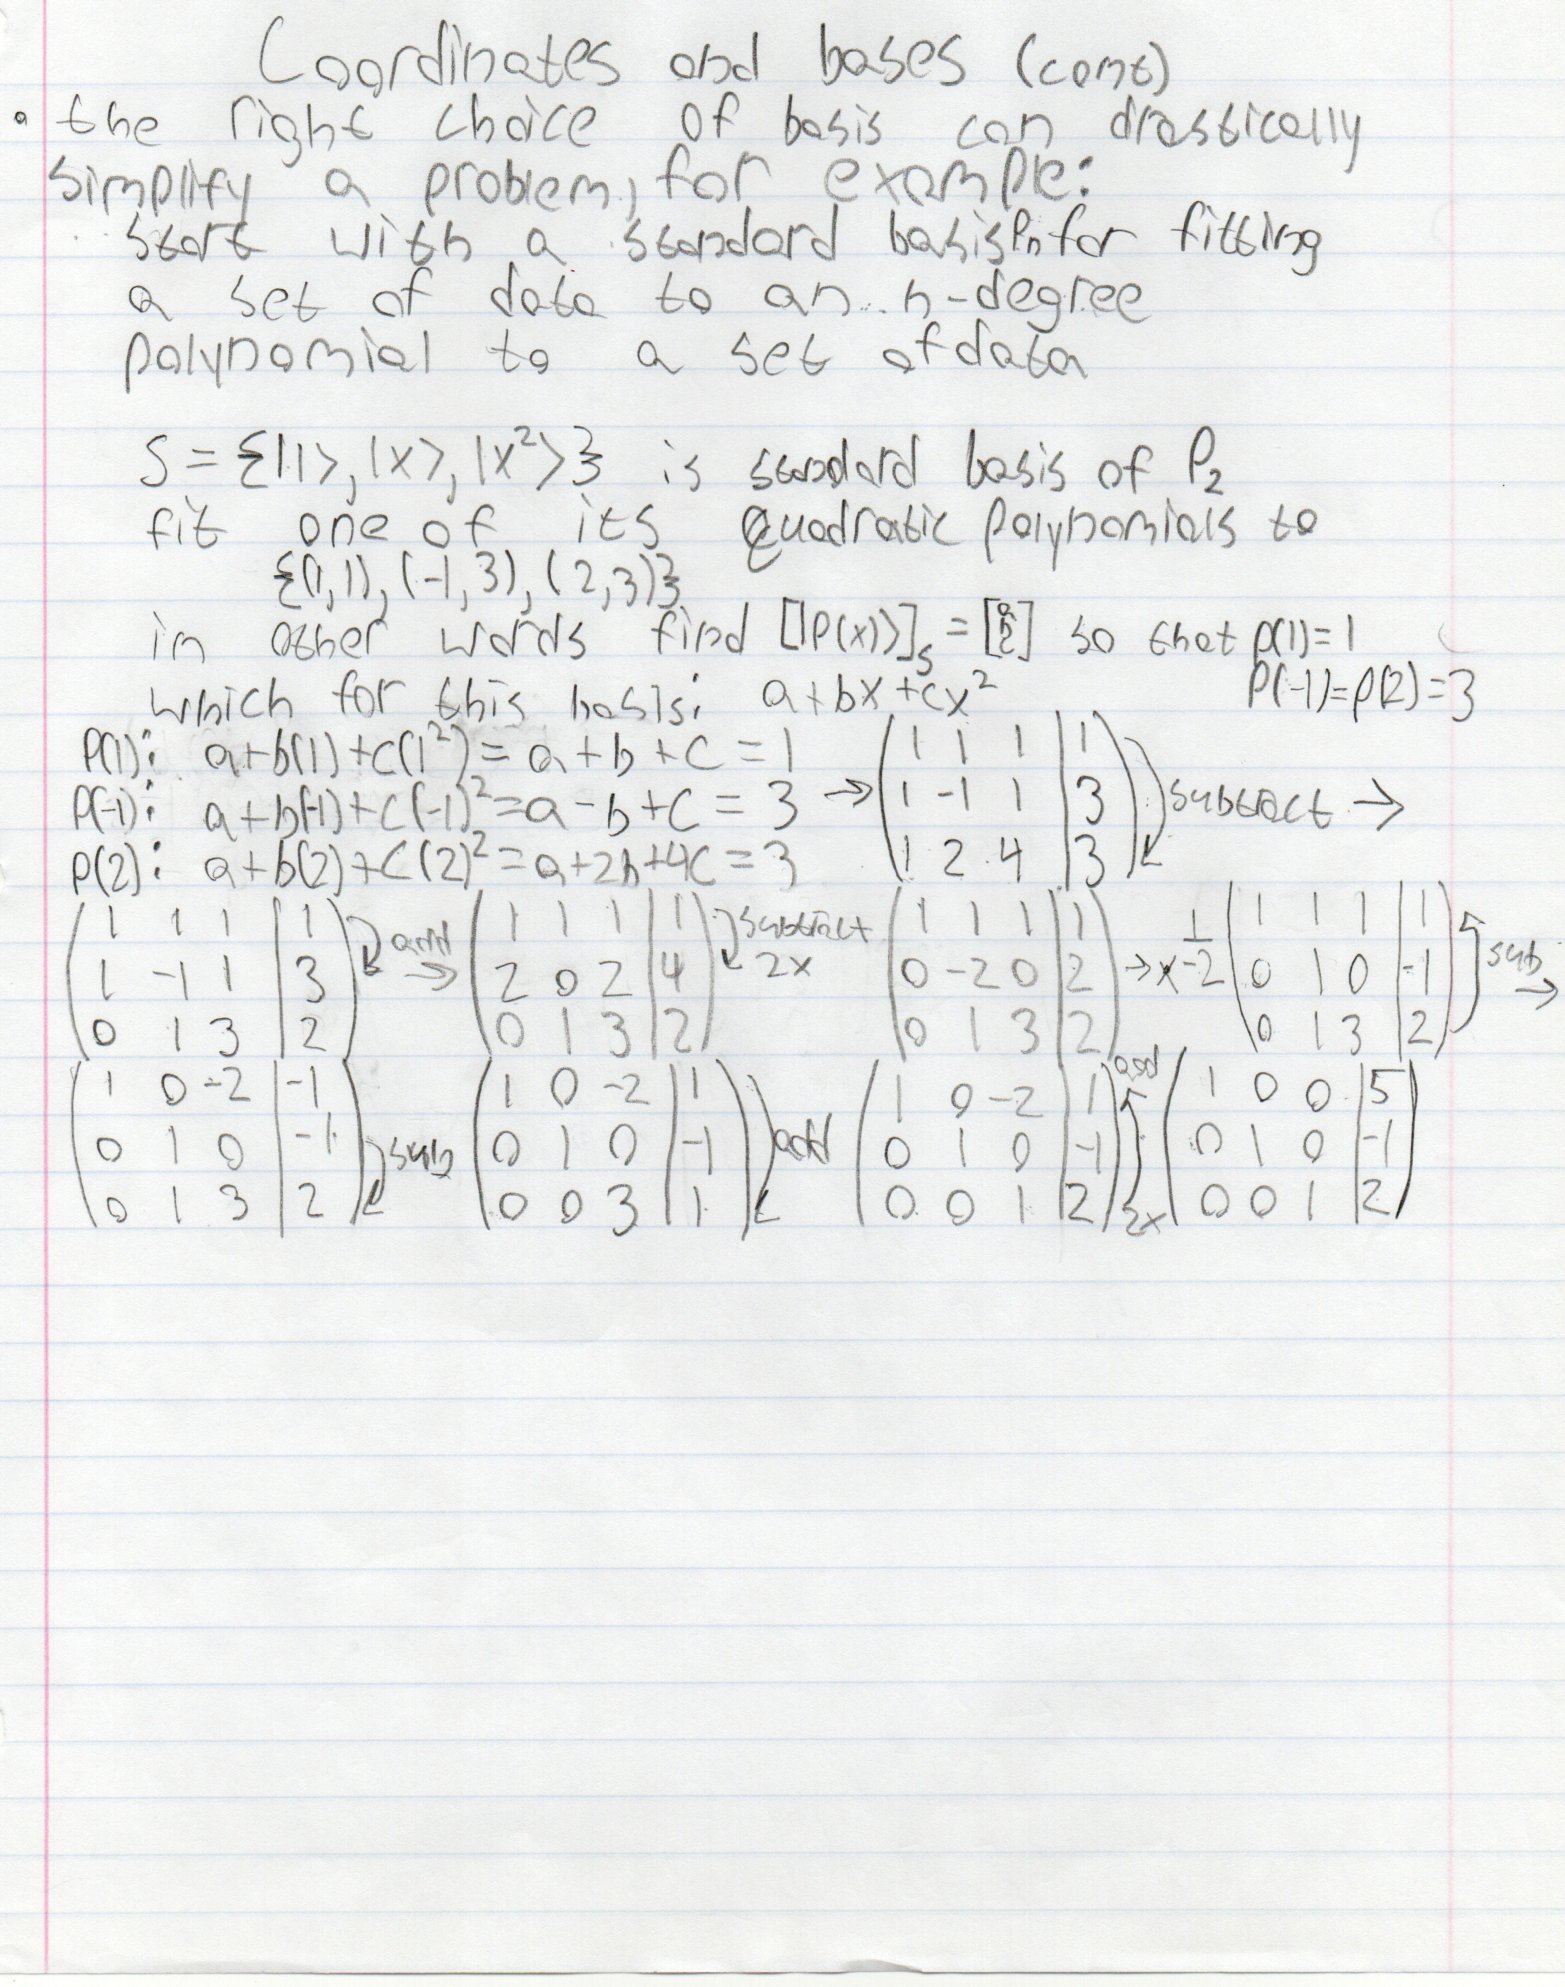 Coordinates and bases (cont)
• the right choice of basis can drastically
simplify a problem, for example:
start with a standard basis Pn for fitting
a set of data to an n-degree
polynomial to a set of data
S = {|1>, |x>, |x²>} is standard basis of P₂
fit one of its quadratic polynomials to
{(1,1), (-1,3), (2,3)}
in other words find [|p(x)>]ₛ = [a b c] so that p(1)=1
which for this basis: a+bx+cx² P(-1)=p(2)=3
P(1): a+b(1)+c(1²)=a+b+c=1
P(-1): a+b(-1)+c(-1)²=a-b+c=3
p(2): a+b(2)+c(2)²=a+2b+4c=3
→ (1 1 1 | 1
1 -1 1 | 3
1 2 4 | 3) subtract →
(1 1 1 | 1
1 -1 1 | 3
0 1 3 | 2) add →
(1 1 1 | 1
2 0 2 | 4
0 1 3 | 2) subtract 2x
(1 1 1 | 1
0 -2 0 | 2
0 1 3 | 2) → x 1/-2
(1 1 1 | 1
0 1 0 | -1
0 1 3 | 2) sub →
(1 0 -2 | -1
0 1 0 | -1
0 1 3 | 2) sub
(1 0 -2 | 1
0 1 0 | -1
0 0 3 | 1) add
(1 0 -2 | 1
0 1 0 | -1
0 0 1 | 2) add 2x
(1 0 0 | 5
0 1 0 | -1
0 0 1 | 2)